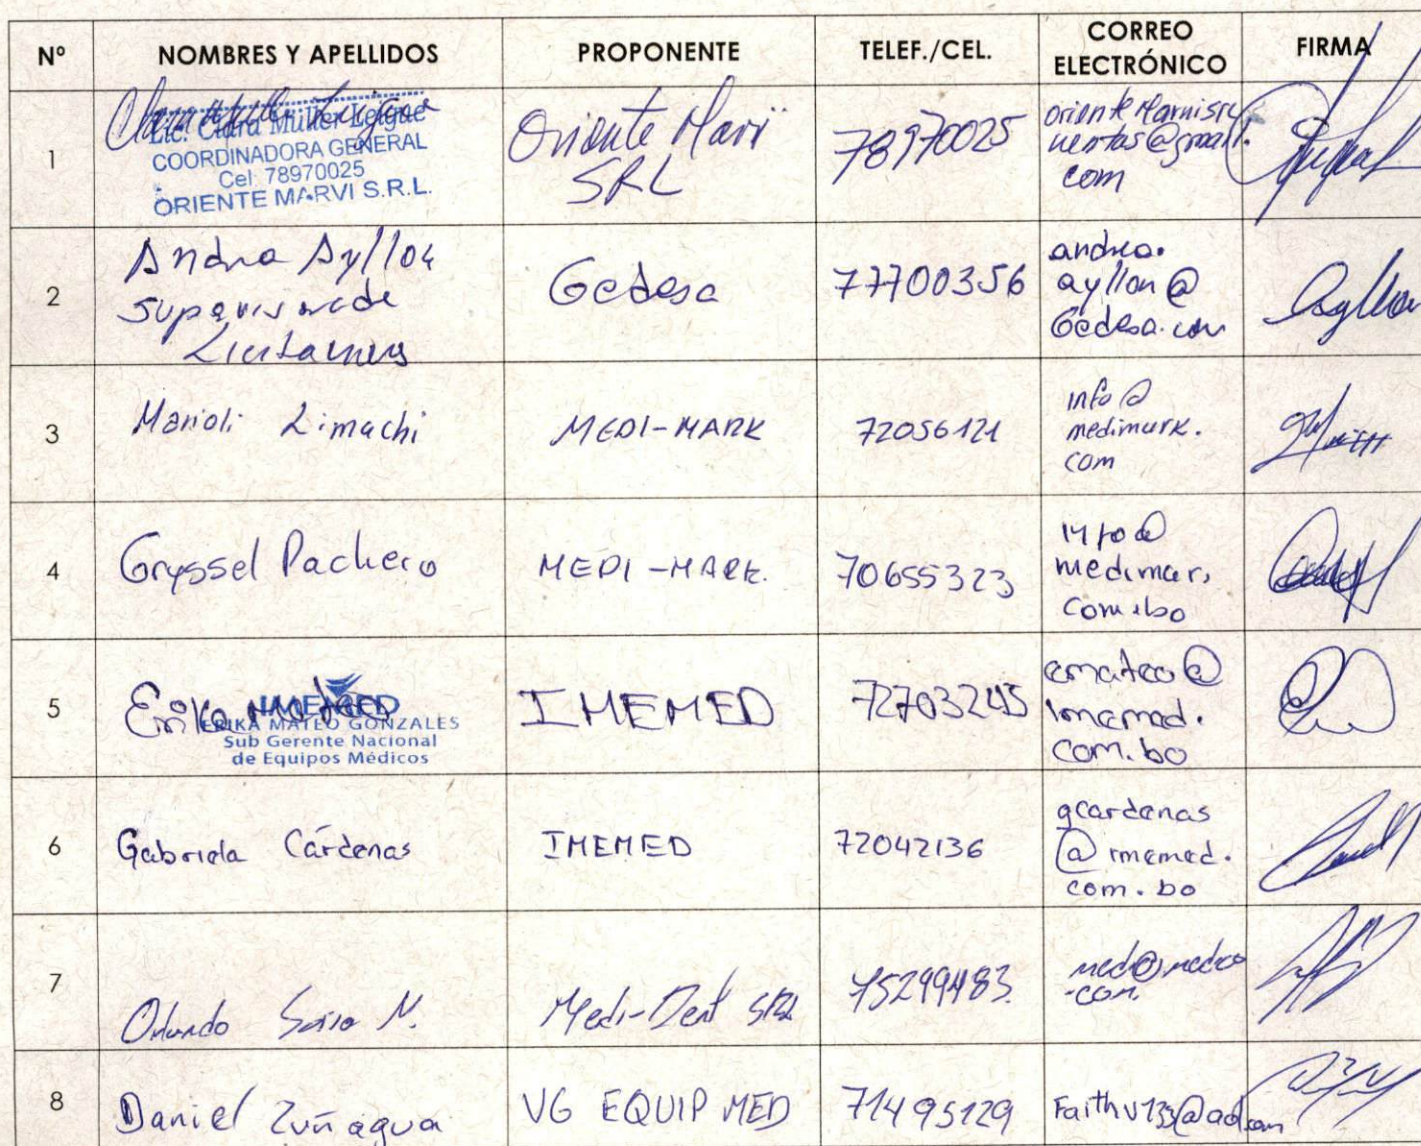 Nº NOMBRES Y APELLIDOS PROPONENTE TELEF./CEL. CORREO ELECTRÓNICO FIRMA
1
Lic. Clara Müller Leigue
COORDINADORA GENERAL
Cel: 78970025
ORIENTE MARVI S.R.L.
Oriente Marvi
SRL
78970025
@gmail.
com
2
Andrea Ayllon
Supervisora de
Licitaciones
Gedesa
77700356
andrea.
ayllon@
Gedesa.com
3
Marioli Limachi
MEDI-MARK
72056121
info@
medimark.
com
4
Gryssel Pacheco
MEDI-MARK.
70655323
info@
medimar.
com.bo
5
Erika Mateo
IMEMED
ERIKA MATEO GONZALES
Sub Gerente Nacional
de Equipos Médicos
IMEMED
72703245
emateo@
imemed.
com.bo
6
Gabriela Cárdenas
IMEMED
72042136
gcardenas
@imemed.
com.bo
7
Orlando N.
Medi-Dent SRL
75299483
.com
8
Daniel Zuñagua
VG EQUIP MED
71495129